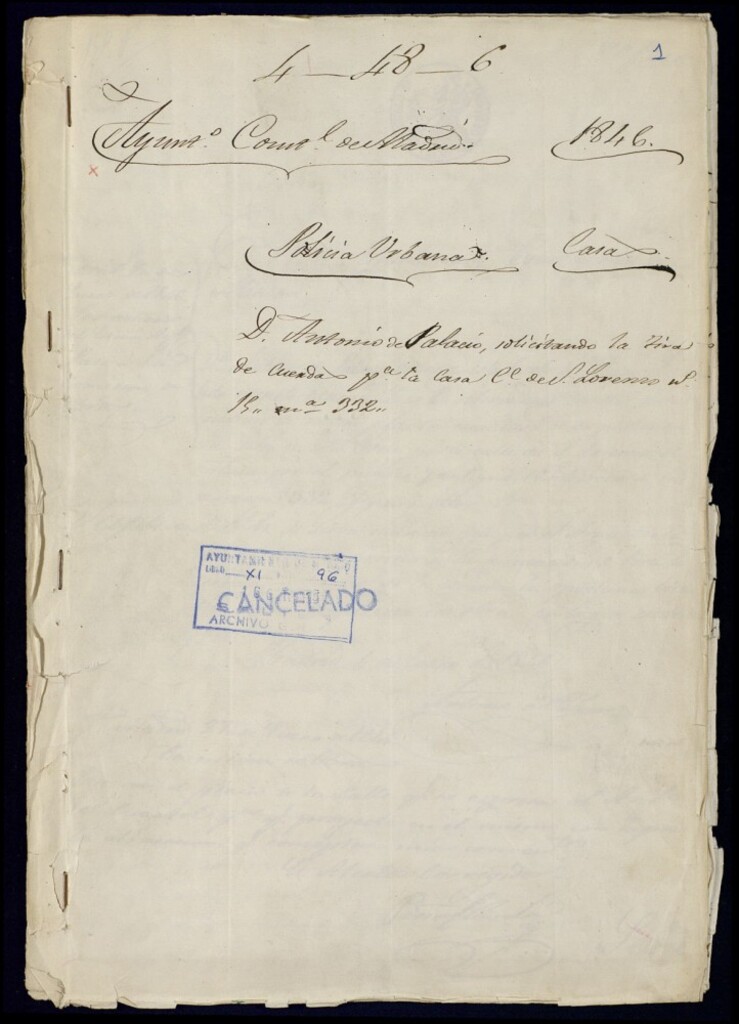 1
4 - 48 - 6
Ayunto. Consl. de Madrid. 1846.
Policia Urbana. Casa
D. Antonio de Palacio, solicitando la tira
de cuerdas pa. la Casa Ce. de S. Lorenzo no.
15,, ma 332,,
AYUNTAMIENTO
XI 96
CANCELADO
ARCHIVO